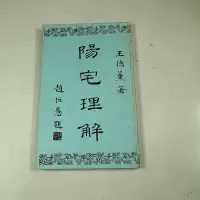 王德薰 著
陽宅理解
趙恆惖題